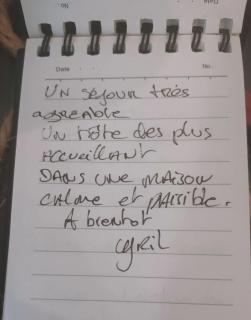 Date
No.
UN séjour très
agréable
UN hôte des plus
Accueillant
DANS UNE MAISON
CALME et PAISIBLE.
A bientot
Cyril